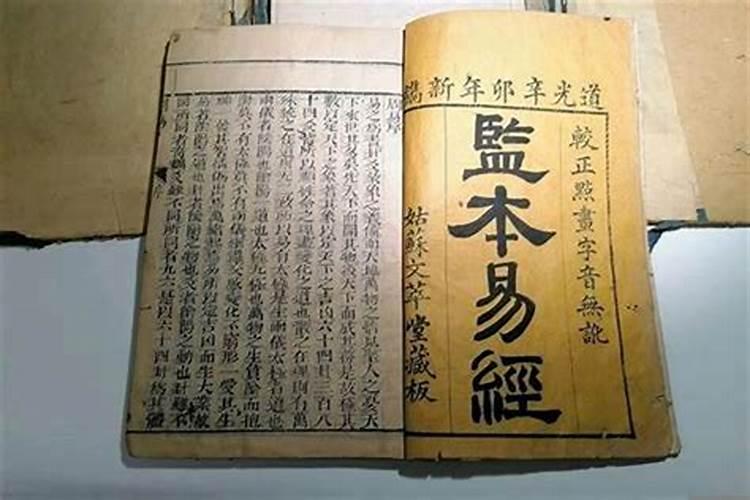 道光辛卯年新鐫
較正點畫字音無訛
監本易經
姑蘇文萃堂藏板
周易序
易之為書卦爻彖象之義備而天地萬物之情見聖人之憂天
下來世其至矣先天下而開其物後天下而成其務是故極其
數以定天下之象著其象以定天下之吉凶六十四卦三百八
十四爻皆所以順性命之理盡變化之道也散之在理則有萬
殊統之在道則无二致所以易有太極是生兩儀太極者道也
兩儀者陰陽也陰陽一道也太極无極也萬物之生負陰而抱
陽莫不有太極莫不有兩儀絪縕交感變化不窮形一受其生
神一發其智情偽出焉萬緒起焉易所以定吉凶而生大業故
易者陰陽之道也卦者陰陽之物也爻者陰陽之動也卦雖不
同所同者奇耦爻雖不同所同者九六是以六十四卦為其體